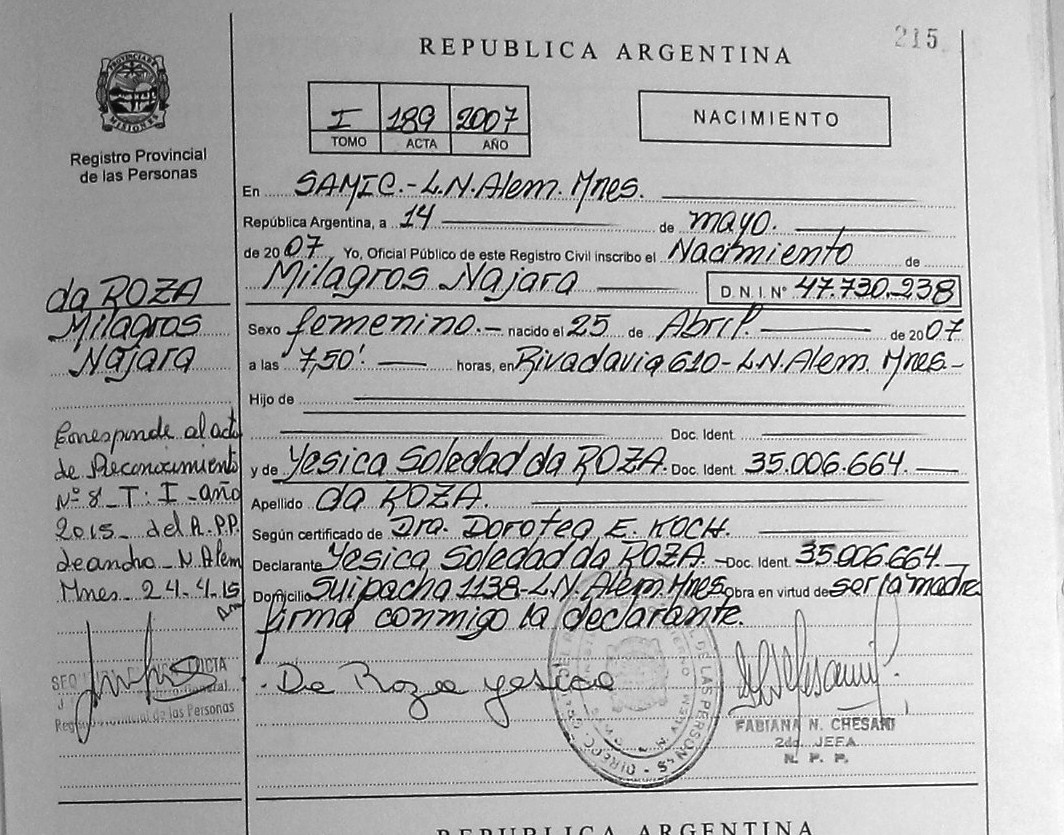 215
REPUBLICA ARGENTINA
PROVINCIA DE MISIONES
Registro Provincial
de las Personas
I 189 2007
TOMO ACTA AÑO
NACIMIENTO
En SAMIC.-L.N.Alem. Mnes.
República Argentina, a 14 de mayo.
de 2007 Yo, Oficial Público de este Registro Civil inscribo el Nacimiento de
Milagros Najara D. N. I. N° 47.730.238
Sexo femenino.- nacido el 25 de Abril. de 2007
a las 7,50'. horas, en Rivadavia 610-L.N.Alem. Mnes.-
Hijo de
Doc. Ident.
y de Yesica Soledad da ROZA. Doc. Ident. 35.006.664.
Apellido da ROZA.
Según certificado de Dra. Dorotea E. KOCH.
Declarante Yesica Soledad da ROZA.- Doc. Ident. 35.006.664.
Domicilio Suipacha 1138-L.N.Alem.Mnes. Obra en virtud de ser la madre
firma conmigo la declarante.
De Roza yesica
FABIANA N. CHESANI
2da. JEFA
R. P. P.
da ROZA
Milagros
Najara
Corresponde al acta
de Reconocimiento
Nº 8_T: I_año
2015_ del R.P.P.
Leandro_N.Alem
Mnes_ 24.4.15
Registro Provincial de las Personas
REPUBLICA ARGENTINA